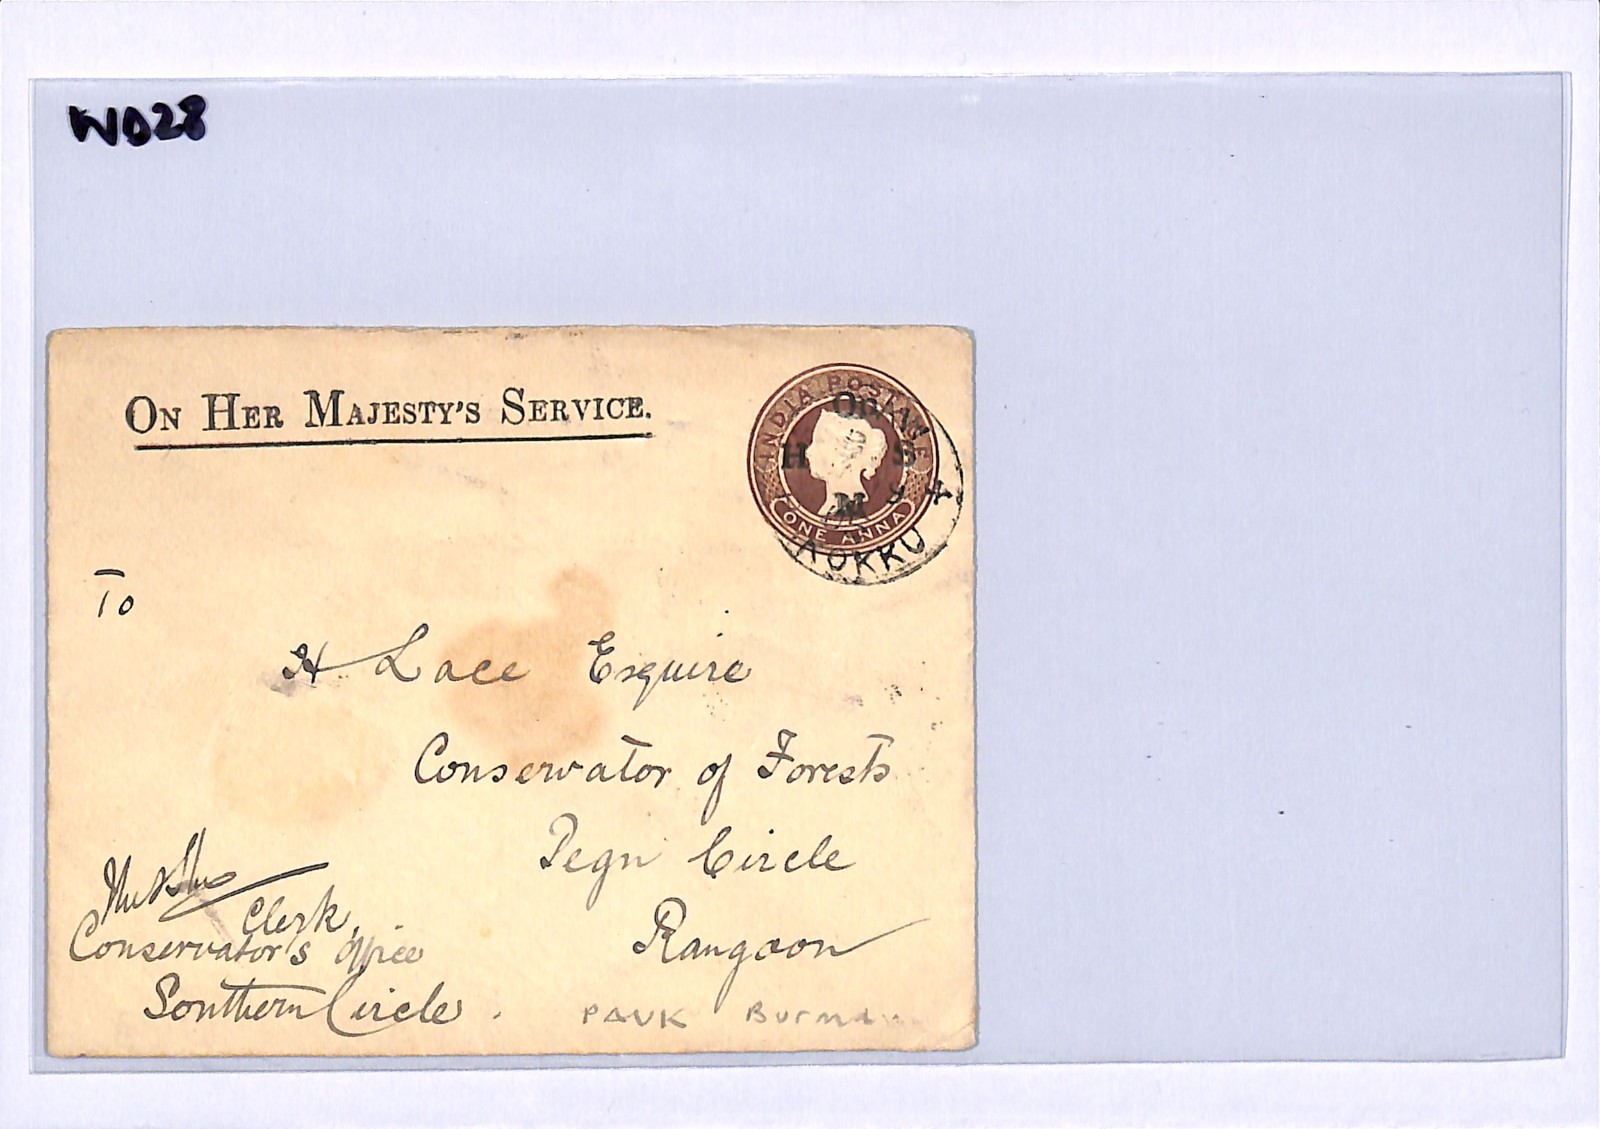 WD28
ON HER MAJESTY'S SERVICE.
INDIA POSTAGE
On
H S
M
ONE ANNA
OKKU
To
H Lace Esquire
Conservator of Forests
Pegu Circle
Rangoon
Clerk,
Conservator's Office
Southern Circle.
PAUK Burma